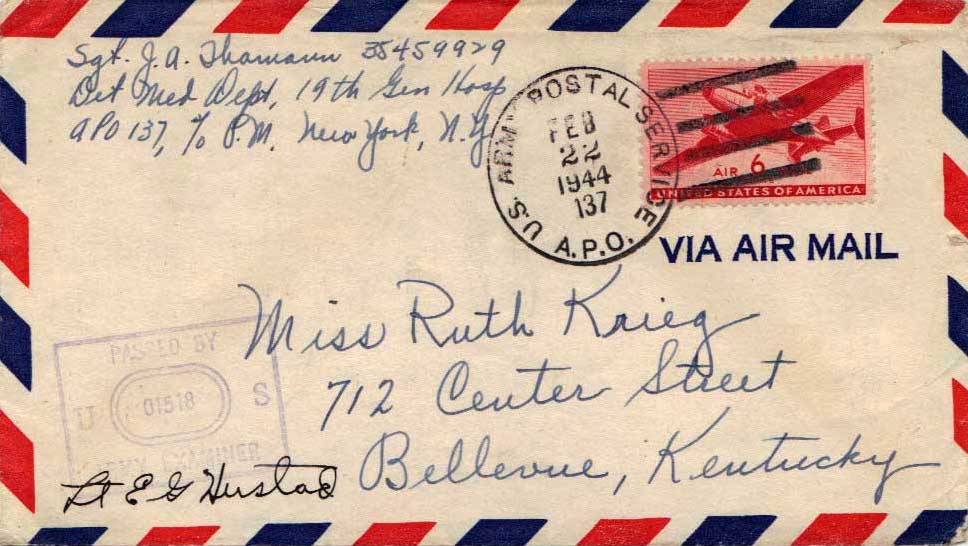 Sgt. J. A. Thamann 35459929
Det Med Dept, 19th Gen Hosp
APO 137, % P.M. New York, N.Y.
U.S. ARMY POSTAL SERVICE
FEB
22
1944
137
A.P.O.
AIR 6¢
UNITED STATES OF AMERICA
VIA AIR MAIL
Miss Ruth Krieg
712 Center Street
Bellevue, Kentucky
PASSED BY
U 01518 S
ARMY EXAMINER
Lt E G Hustad